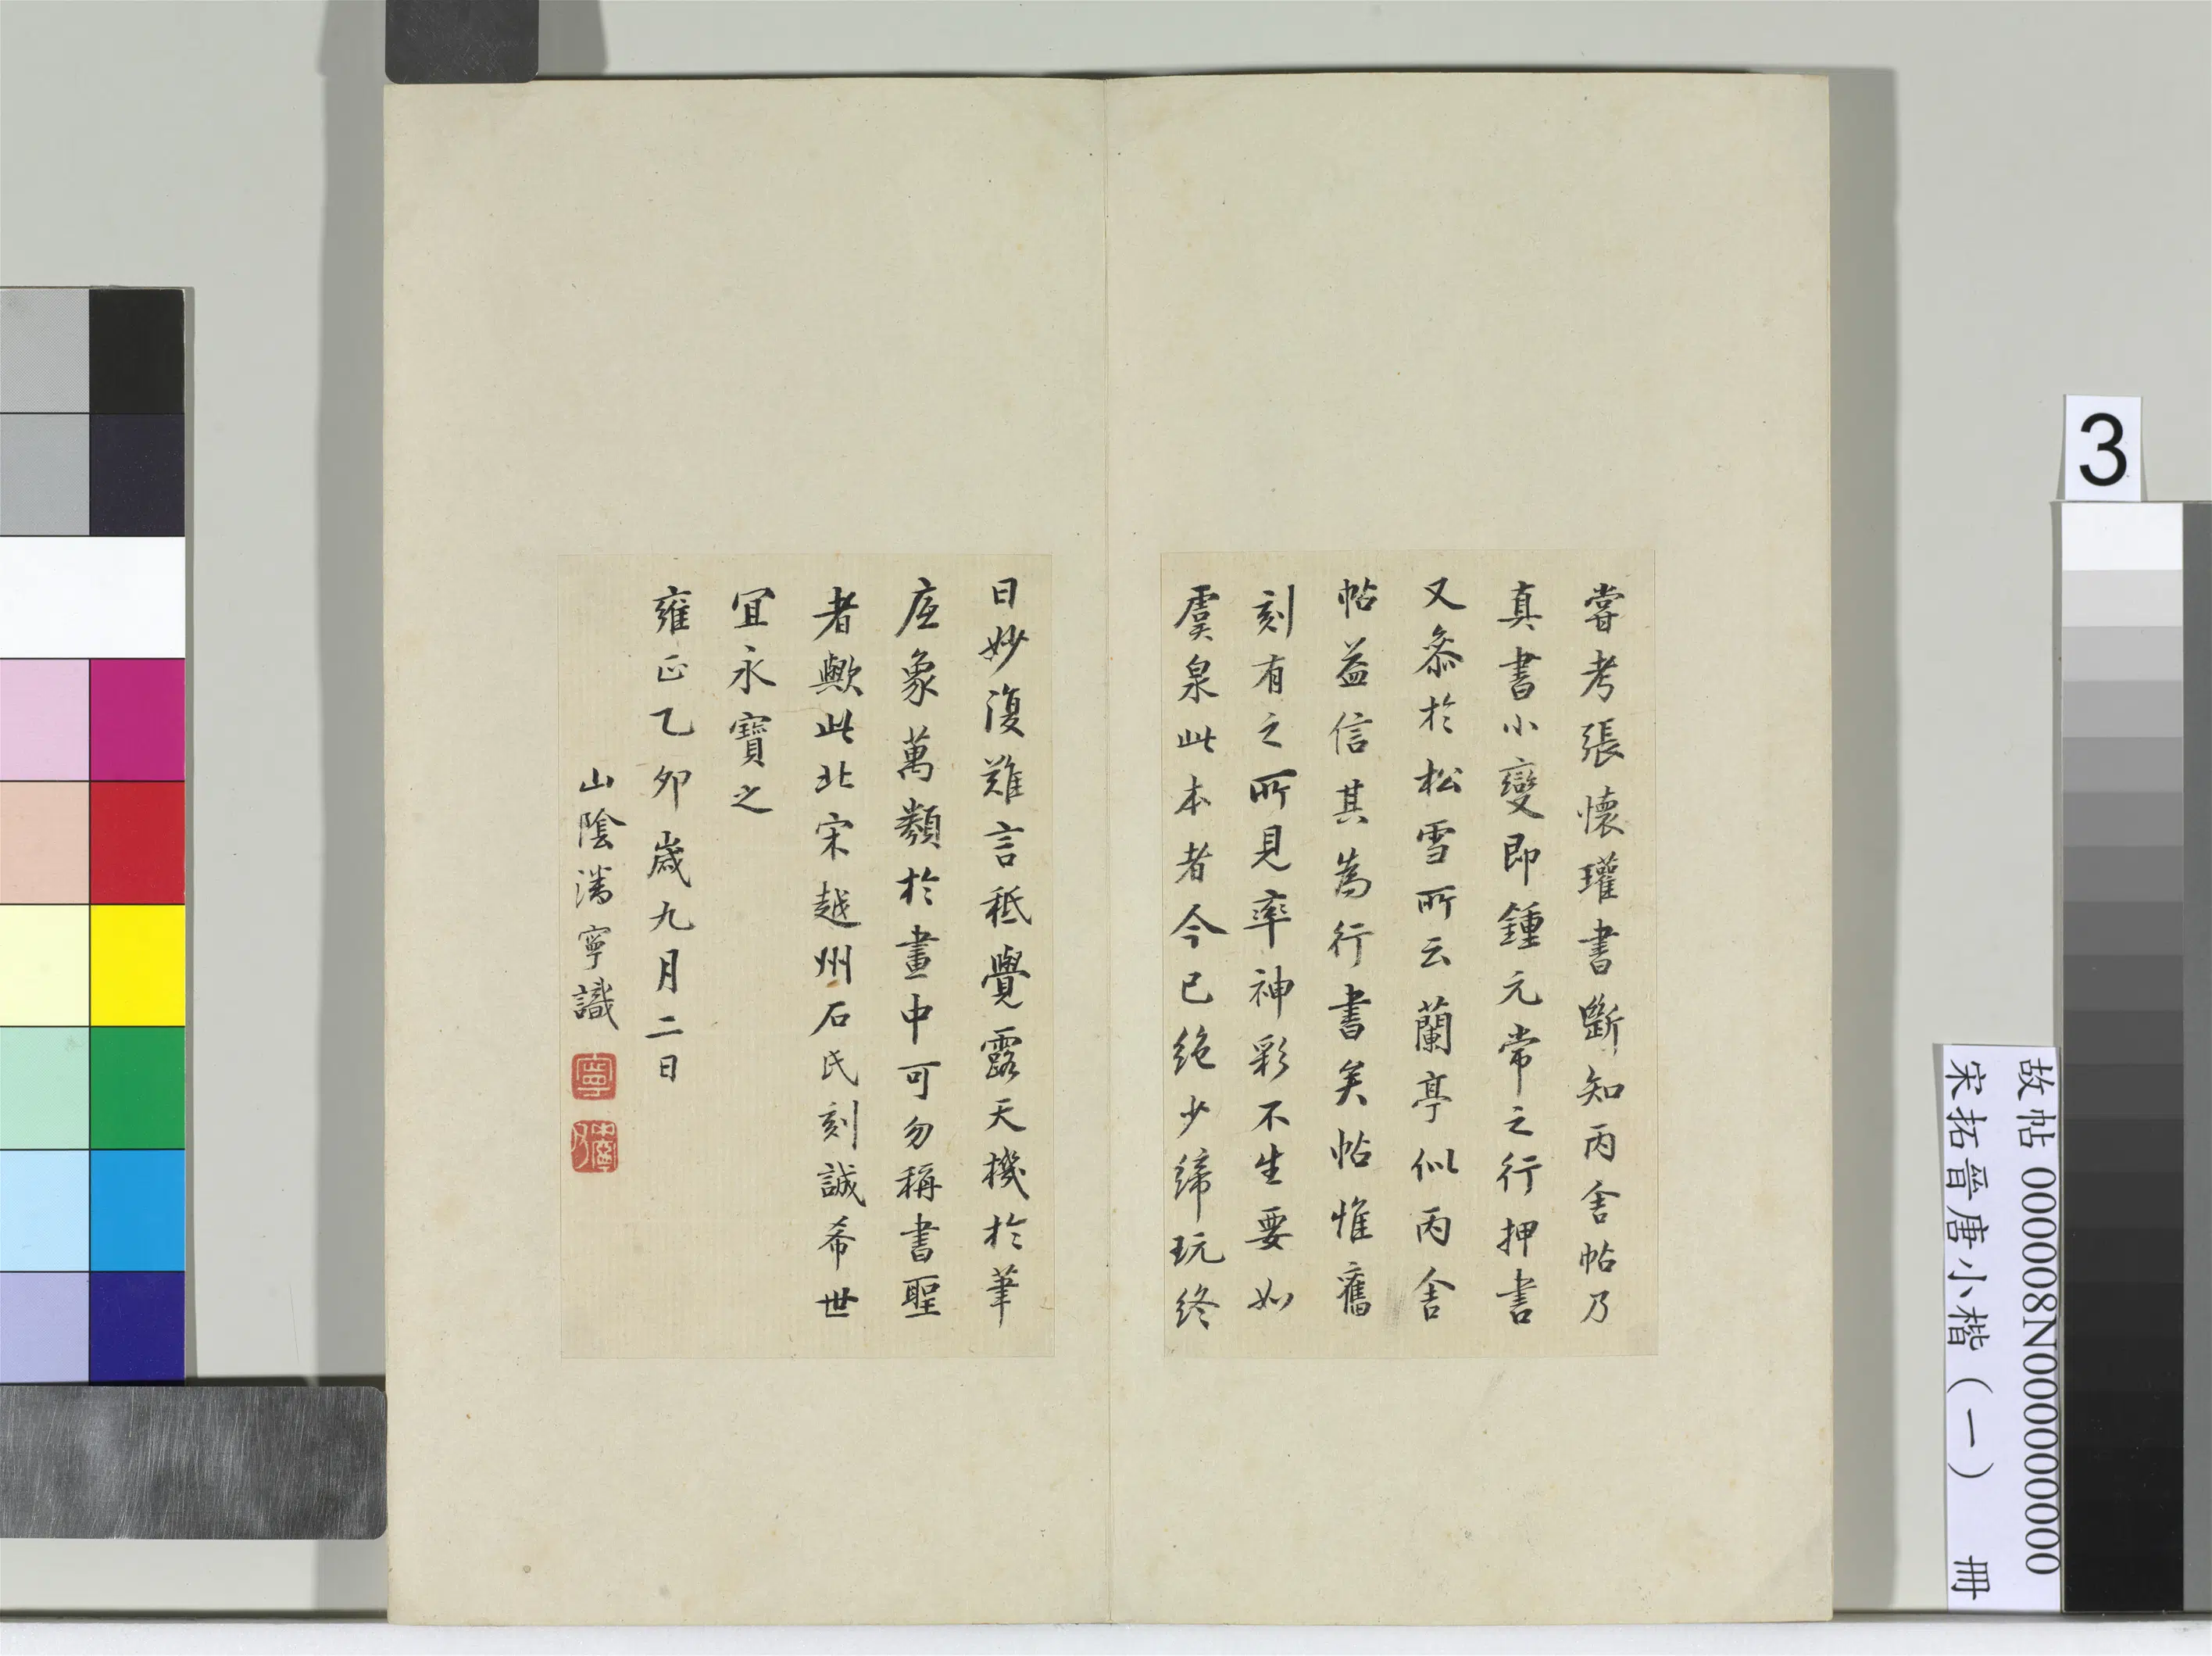 嘗考張懷瓘書斷知丙舍帖乃
真書小變即鍾元常之行押書
又叅於松雪所云蘭亭似丙舍
帖益信其為行書矣帖惟舊
刻有之所見率神彩不生要如
虞泉此本者今已绝少締玩终
日妙復難言秪覺露天機於筆
底象萬類於畫中可勿稱書聖
者歟此北宋越州石氏刻誠希世
宜永寶之
雍正乙夘歲九月二日
山陰潘寧識
寧
3
故帖 000008N000000000
宋拓晉唐小楷（一） 冊